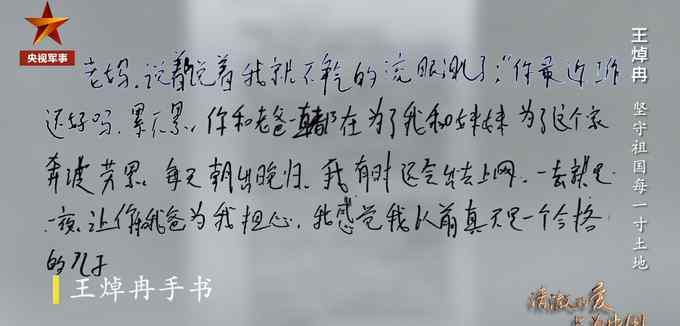 央视军事
老妈，说着说着我就不自的流眼泪了，“你最近工作
还好吗，累不累，你和老爸一直都在为了我和妹妹为了这个家
奔波劳累。每天朝出晚归，我有时还会出去上网，一去就是
一夜，让你和我爸为我担心，我感觉我以前真不是一个合格
的儿子
王焯冉手书
王焯冉 坚守祖国每一寸土地
清澈的爱
只为中国